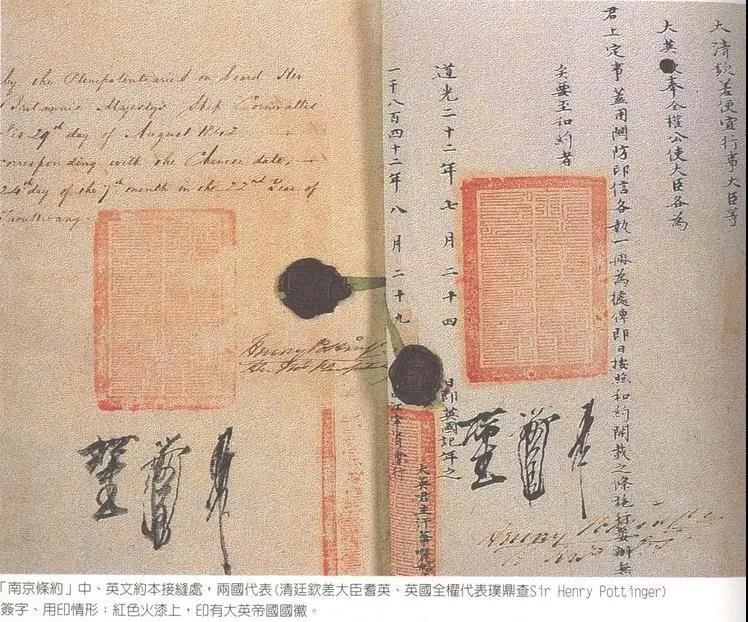 by the Plenipotentaries on board Her
Britannic Majestys Ship Cornwallis
his 29th day of August 1842
corresponding with the Chinese date,
24th day of the 7th month in the 22nd Year of
Taoukwang.
Henry Pottinger
大清欽差便宜行事大臣等
大英奉全權公使大臣各為
君上定事蓋用關防印信各執一冊為據俾即日按照和約開載之條施行妥辦無
矣要至和約者
道光二十二年七月二十四日即英國記年之
一千八百四十二年八月二十九
大英君主汗華
Henry Pottinger
「南京條約」中、英文約本接縫處，兩國代表(清廷欽差大臣耆英、英國全權代表璞鼎查Sir Henry Pottinger)
簽字、用印情形；紅色火漆上，印有大英帝國國徽。